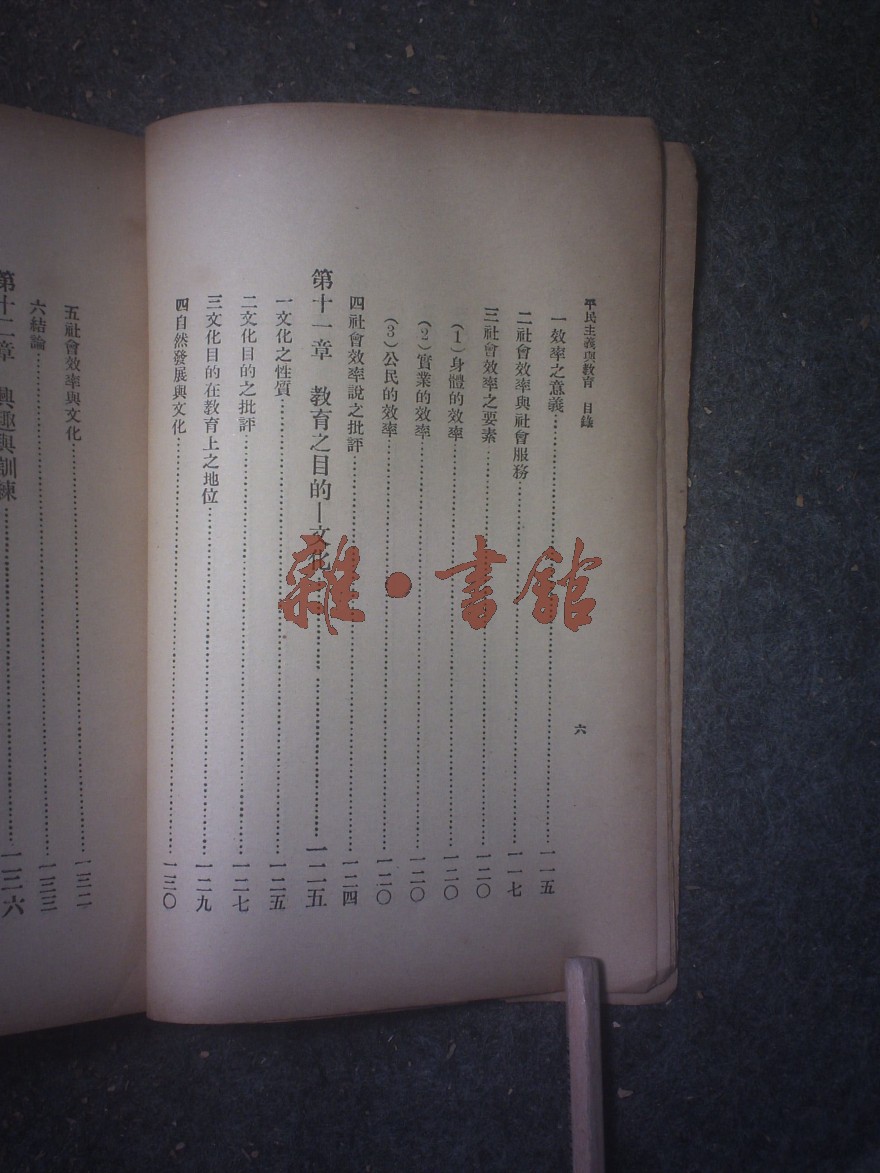 平民主義與教育 目錄
六
一效率之意義⋯⋯⋯⋯一一五
二社會效率與社會服務⋯⋯⋯⋯一一七
三社會效率之要素⋯⋯⋯⋯一二〇
(1)身體的效率⋯⋯⋯⋯一二〇
(2)實業的效率⋯⋯⋯⋯一二〇
(3)公民的效率⋯⋯⋯⋯一二〇
四社會效率說之批評⋯⋯⋯⋯一二四
第十一章 教育之目的—文化⋯⋯⋯⋯一二五
一文化之性質⋯⋯⋯⋯一二五
二文化目的之批評⋯⋯⋯⋯一二七
三文化目的在教育上之地位⋯⋯⋯⋯一二九
四自然發展與文化⋯⋯⋯⋯一三〇
五社會效率與文化⋯⋯⋯⋯一三二
六結論⋯⋯⋯⋯一三三
第十二章 興趣與訓練⋯⋯⋯⋯一三六
雜·書館